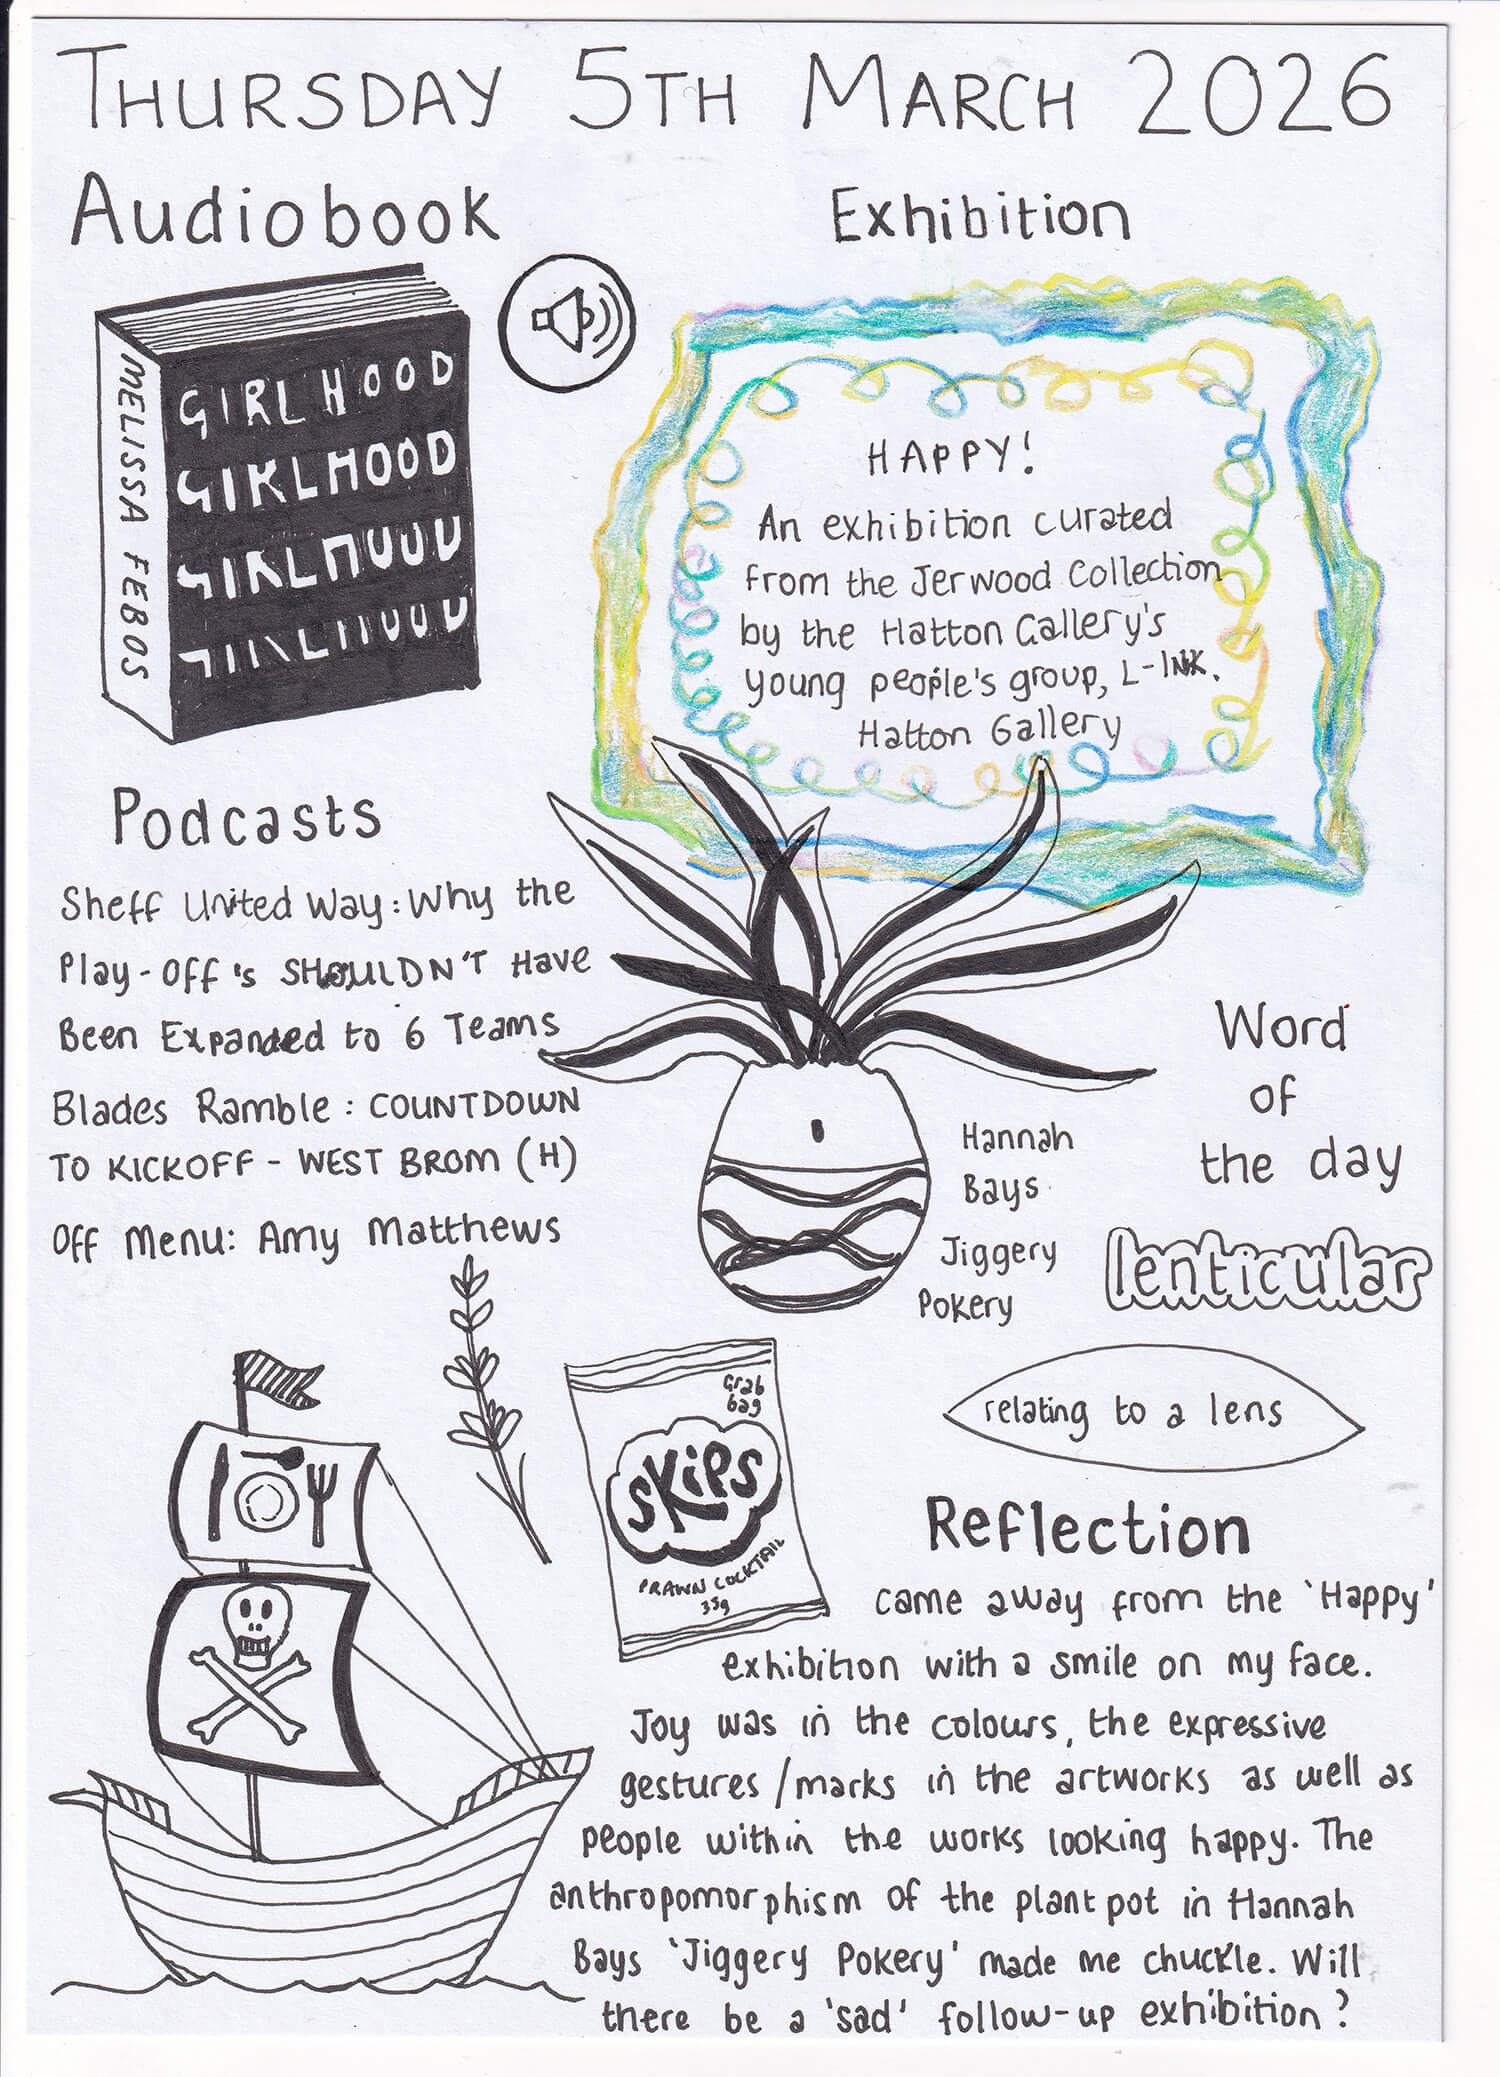 THURSDAY 5TH MARCH 2026
Audiobook
MELISSA FEBOS
GIRLHOOD
GIRLHOOD
GIRLHOOD
GIRLHOOD
Exhibition
HAPPY!
An exhibition curated
from the Jerwood Collection
by the Hatton Gallery's
young people's group, L-INK.
Hatton Gallery
Podcasts
Sheff United Way: Why the
Play-Off's SHOULDN'T Have
Been Expanded to 6 Teams
Blades Ramble: COUNTDOWN
TO KICKOFF - WEST BROM (H)
Off Menu: Amy Matthews
Hannah
Bays
Jiggery
Pokery
Word
of
the day
lenticular
relating to a lens
Grab
bag
SKIPS
PRAWN COCKTAIL
33g
Reflection
came away from the 'Happy'
exhibition with a smile on my face.
Joy was in the colours, the expressive
gestures/marks in the artworks as well as
people within the works looking happy. The
anthropomorphism of the plant pot in Hannah
Bays 'Jiggery Pokery' made me chuckle. Will
there be a 'sad' follow-up exhibition?